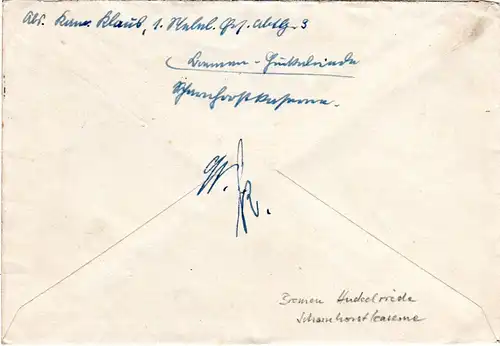 Abs. Kan. Klaus, 1. Nebel. Ers. Abtlg. 3
Bremen - Huckelriede
Scharnhorstkaserne.
Bremen Huckelriede
Scharnhorstkaserne